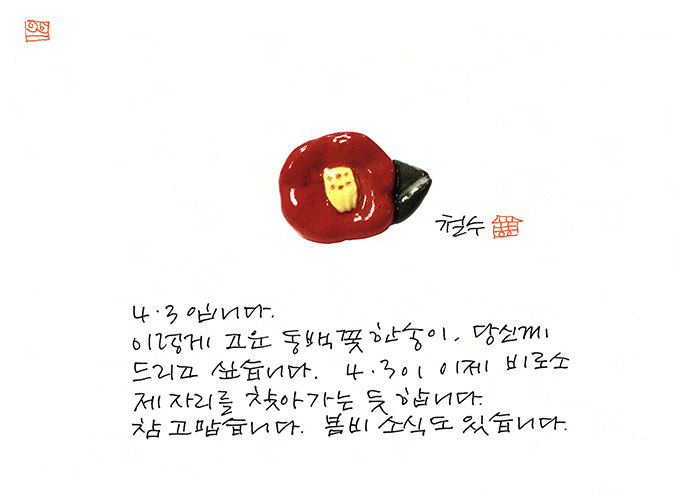 철수
4·3 입니다.
이렇게 고운 동백꽃 한송이, 당신께
드리고 싶습니다. 4·3이 이제 비로소
제자리를 찾아가는 듯 합니다.
참 고맙습니다. 봄비 소식도 있습니다.